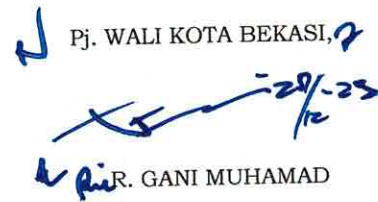 Pj. WALI KOTA BEKASI,
28/12-23
R. GANI MUHAMAD